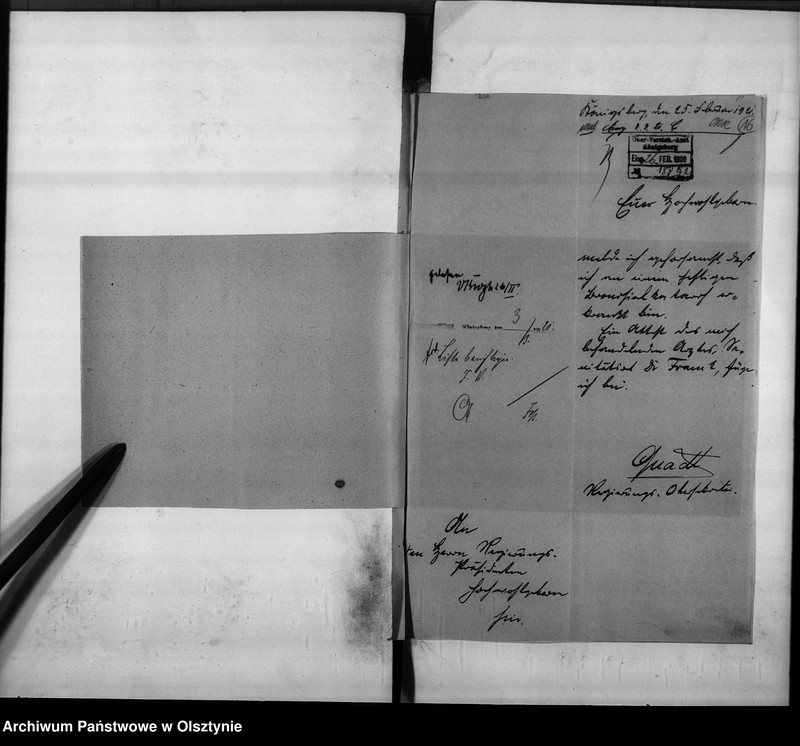 Königsberg, den 25. Februar 192
Ober-Versich.-Amt
Königsberg
Eing. 26. FEB. 1920
Euer Hochwohlgeboren
melde ich gehorsamst, daß
ich an einem heftigen
Bronchialkatarrh er-
krankt bin.
Ein Attest des mich
behandelnden Arztes, Sa-
nitätsrat Dr. Frantz, füge
ich bei.
Quadt
Regierungs-Obersekretär.
gelesen
26/II
3
An
den Herrn Regierungs-
Präsidenten
Hochwohlgeboren
hier.
Archiwum Państwowe w Olsztynie